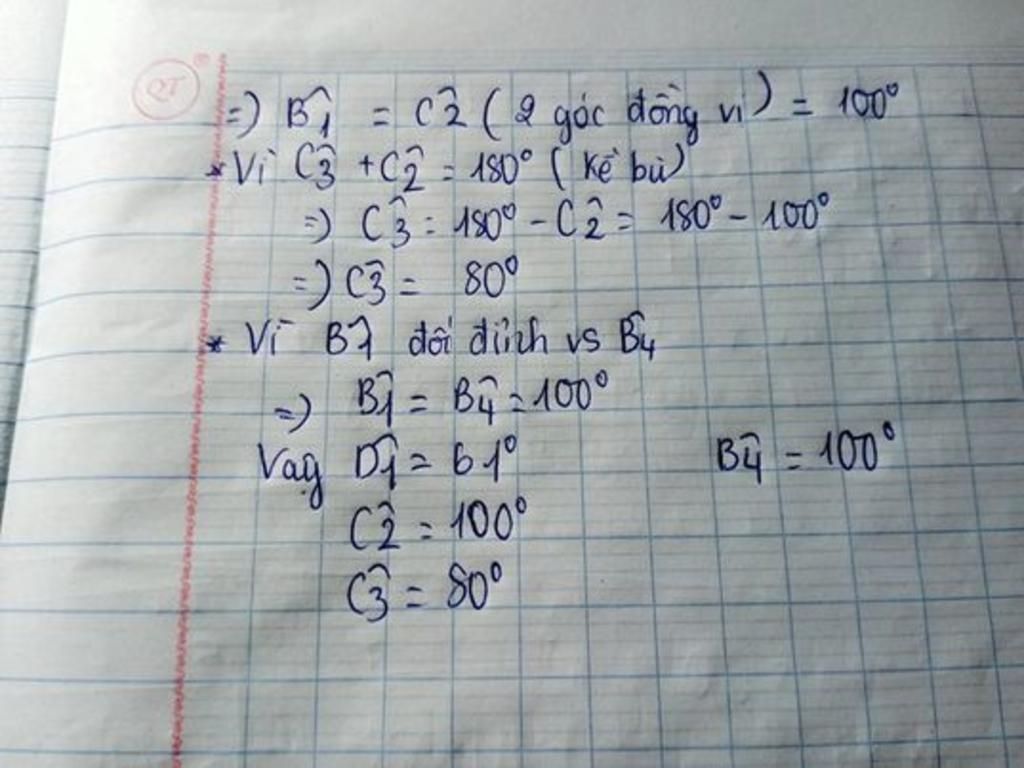 QT
=) B̂1 = Ĉ2 ( 2 góc đồng vị ) = 100°
* Vì Ĉ3 + Ĉ2 = 180° ( kề bù)
=) Ĉ3 = 180° - Ĉ2 = 180° - 100°
=) Ĉ3 = 80°
* Vì B̂1 đối đỉnh vs B̂4
=) B̂1 = B̂4 = 100°
Vaỵ D̂1 = 61° B̂4 = 100°
Ĉ2 = 100°
Ĉ3 = 80°